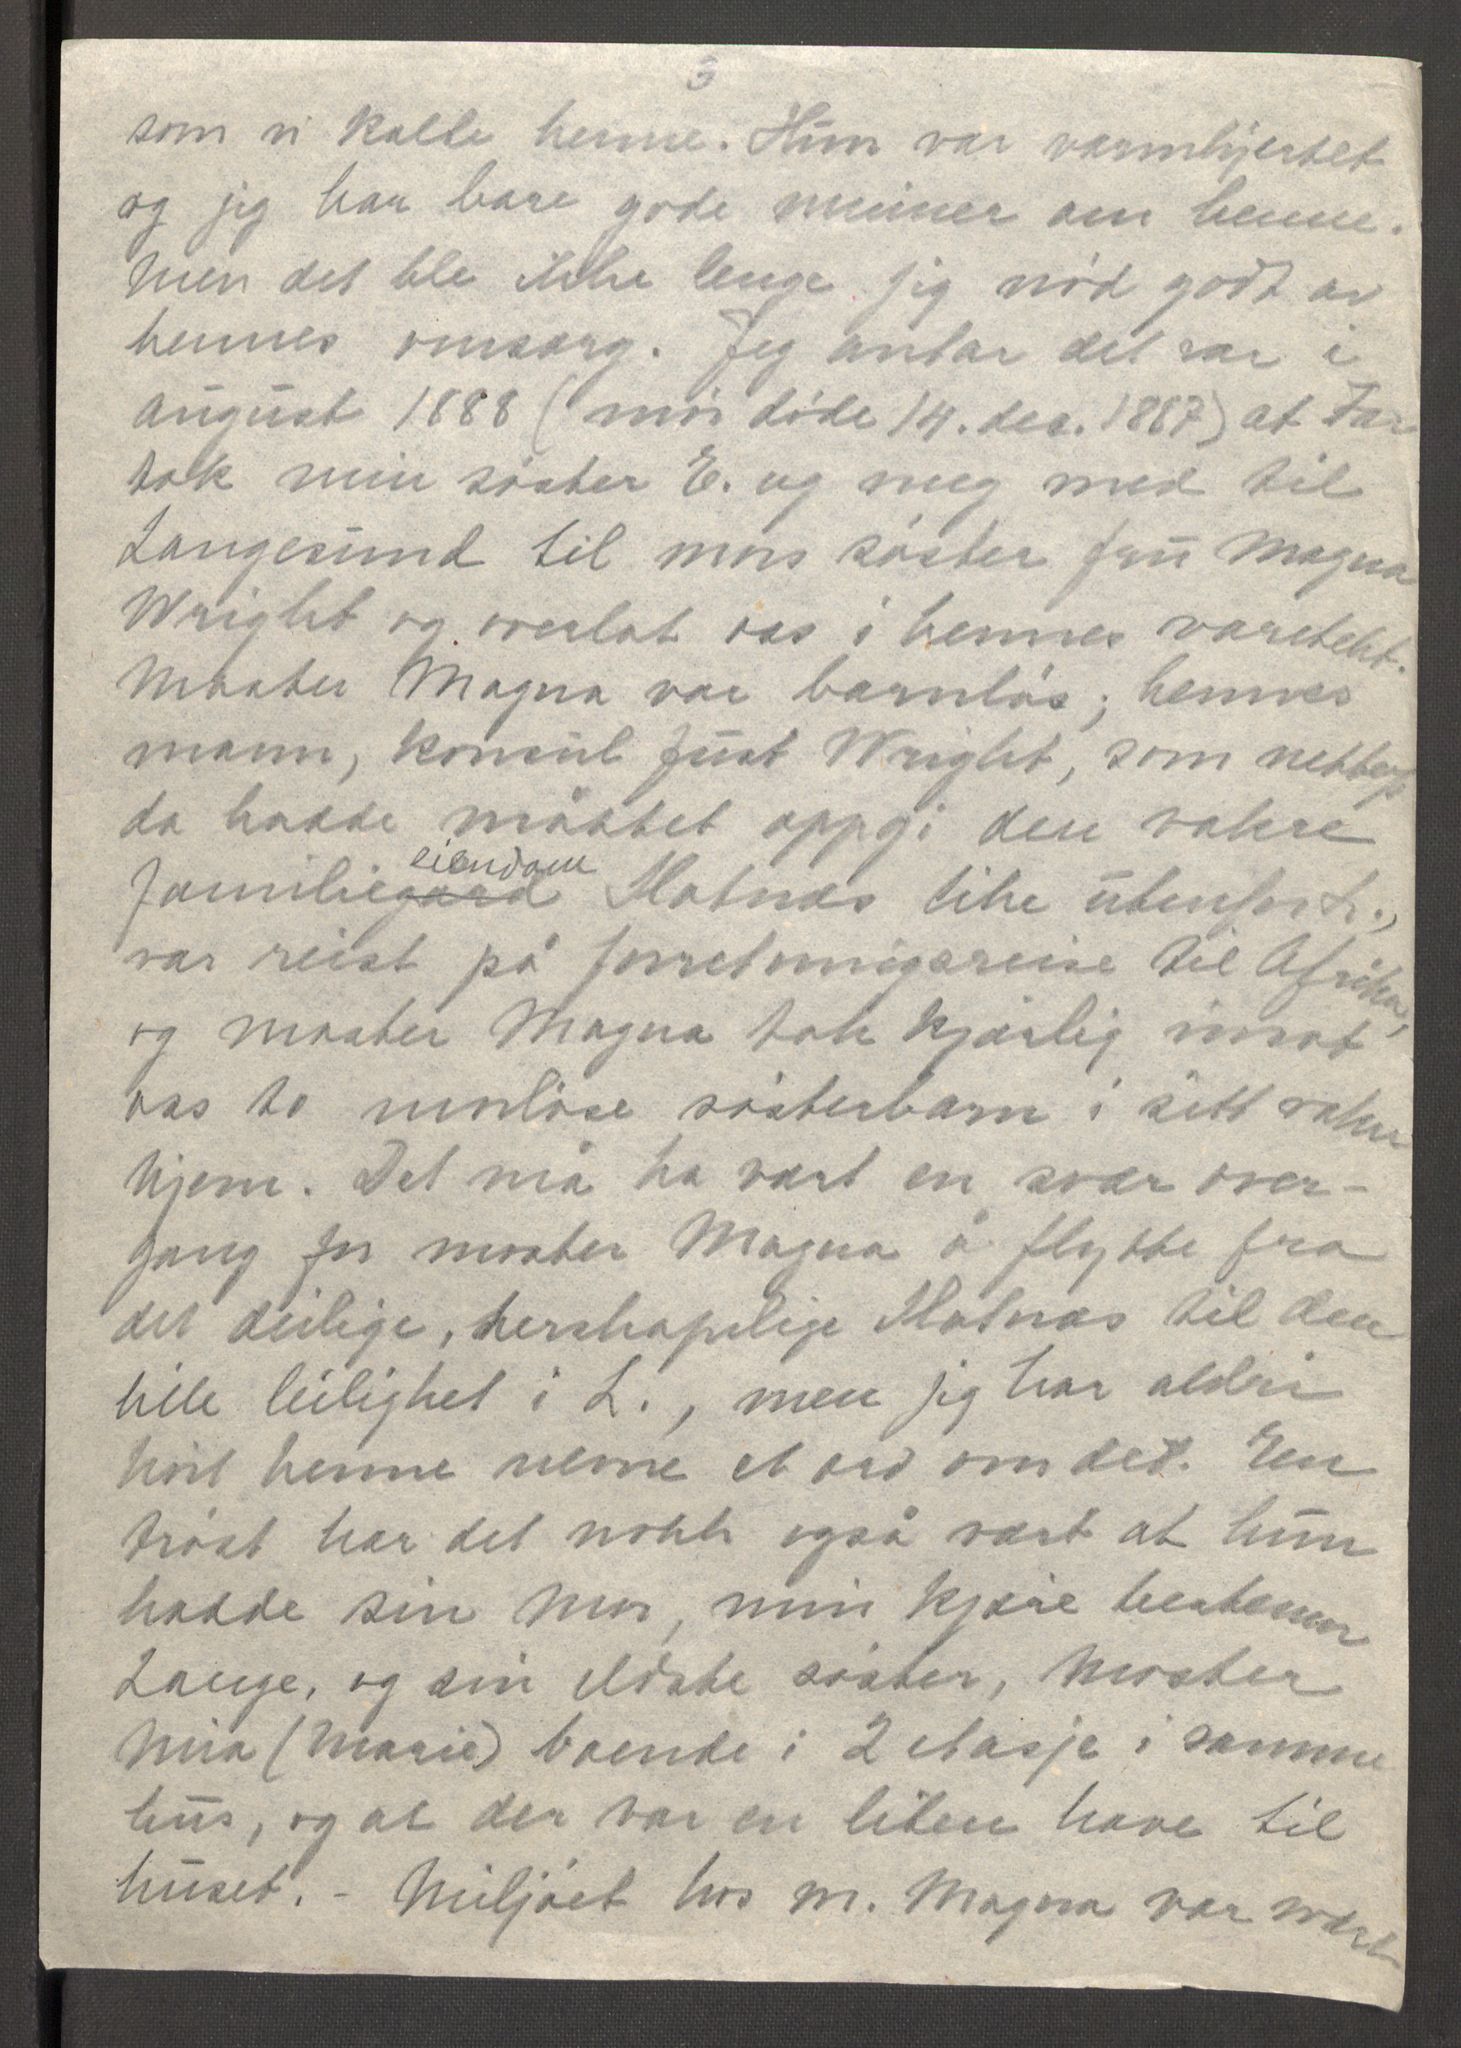 3
som vi kalle henne. Hun var varmhjertet
og jeg har bare gode minner om henne.
Men det ble ikke lenge jeg nød godt av
hennes omsorg. Jeg antar det var i
august 1888 (mor døde 14. des. 1887) at Far
tok min søster E. og meg med til
Langesund til mors søster fru Magna
Wright og overlot oss i hennes varetekt.
Moster Magna var barnløs; hennes
mann, konsul Just Wright, som nettopp
da hadde måttet oppgi den vakre
eiendom
familiegard Slotnæs like utenfor L.,
var reist på forretningsreise til Afrika,
og moster Magna tok kjærlig imot
oss to morløse søsterbarn i sitt vakre
hjem. Det må ha vært en svær over-
gang for moster Magna å flytte fra
det deilige, herskapelige Slotnæs til den
lille leilighet i L., men jeg har aldri
hört henne nevne et ord om det. En
trøst har det nokk også vært at hun
hadde sin Mor, min kjære bestemor
Lange, og sin eldste søster, Moster
Mia (Marie) boende i 2 etasje i samme
hus, og at der var en liten have til
huset. - Miljøet hos m. Magna var svært